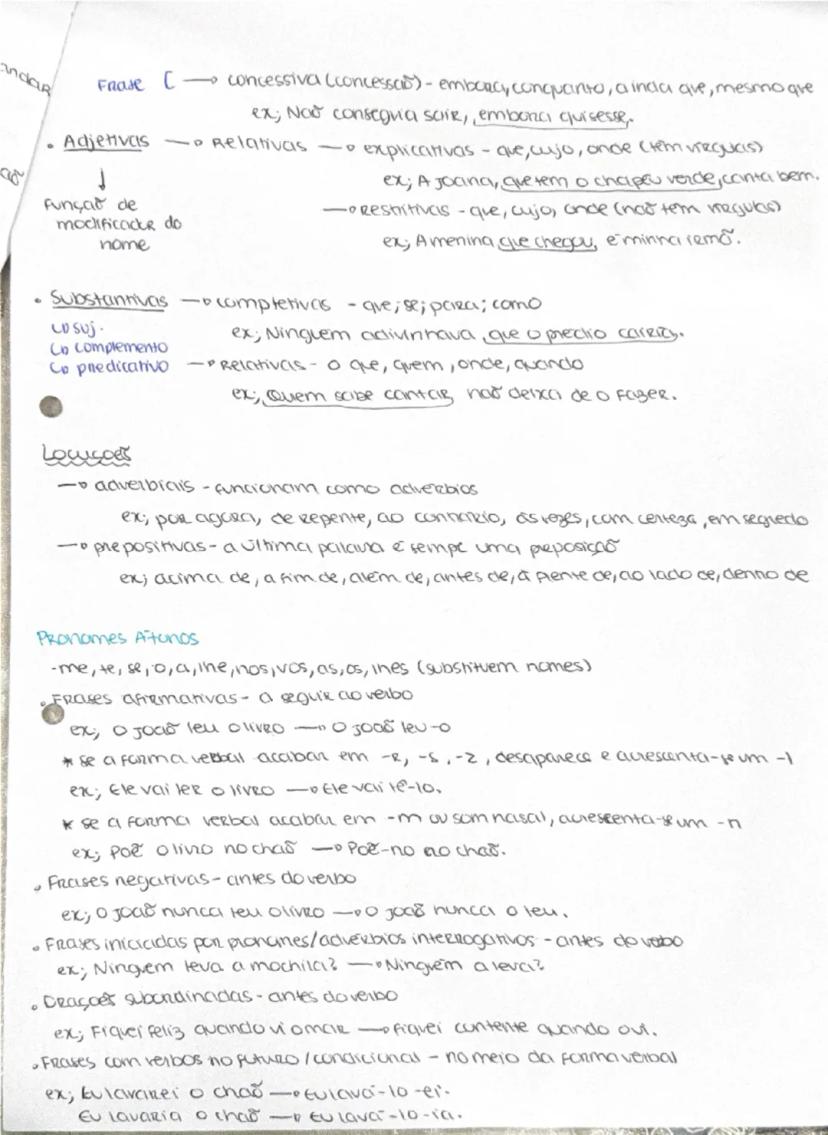 andar
Frase [ → concessiva (concessão) - embora, conquanto, ainda que, mesmo que
ex; Não conseguia sair, embora quisesse.
• Adjetivas → Relativas → explicativas - que, cujo, onde (têm vírgulas)
ex; A Joana, que tem o chapéu verde, canta bem.
↓
função de
modificador do
nome
→ Restritivas - que, cujo, onde (não tem vírgulas)
ex; A menina que chegou, é minha irmã.
• Substantivas → completivas - que; se; para; como
↳ suj.
↳ complemento
↳ predicativo
ex; Ninguém adivinhava, que o prédio cairia.
→ Relativas - o que, quem, onde, quando
ex; Quem sabe cantar, não deixa de o fazer.
Locuções
→ adverbiais - funcionam como advérbios
ex; por agora, de repente, ao contrário, às vezes, com certeza, em segredo
→ prepositivas - a última palavra é sempe uma preposição
ex; acima de, a fim de, além de, antes de, à frente de, ao lado de, dentro de
Pronomes Átonos
-me, te, se, o, a, lhe, nos, vos, as, os, lhes (substituem nomes)
• Frases afirmativas - a seguir ao verbo
ex; O João leu o livro → O João leu-o
* se a forma verbal acabar em -r, -s, -z, desaparece e acrescenta-se um -l
ex; Ele vai ler o livro → Ele vai lê-lo.
* se a forma verbal acabar em -m ou som nasal, acrescenta-se um -n
ex; Põe o livro no chão → Põe-no no chão.
• Frases negativas - antes do verbo
ex; O João nunca leu o livro → O João nunca o leu.
• Frases iniciadas por pronomes/advérbios interrogativos - antes do verbo
ex; Ninguém leva a mochila? → Ninguém a leva?
• Orações subordinadas - antes do verbo
ex; Fiquei feliz quando vi o mar → fiquei contente quando o vi.
• Frases com verbos no futuro / condicional - no meio da forma verbal
ex; Eu lavarei o chão → Eu lavá-lo-ei.
Eu lavaria o chão → Eu lavá-lo-ia.